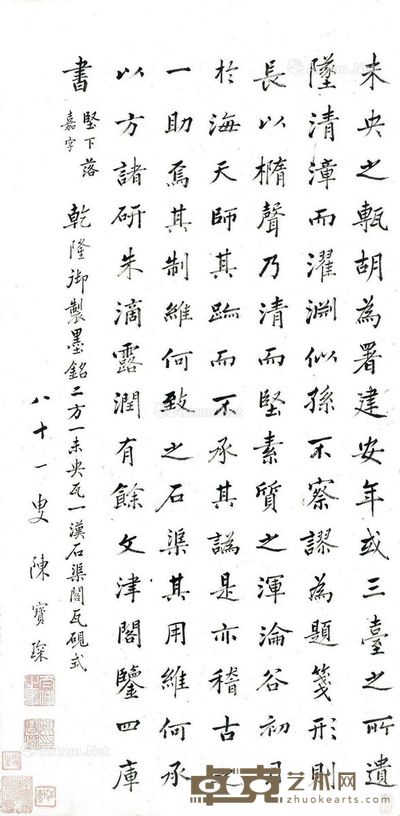 未央之瓻胡為署建安年或三臺之所遺
墜清漳而濯淵似孫不察謬為題箋形則
長以橢聲乃清而堅素質之渾淪谷初月
於海天師其跡而不承其譌是亦稽古之
一助焉其制維何致之石渠其用維何承
以方諸研朱滴露潤有餘文津閣鑒四庫
書
堅下落
嘉字
乾隆御製墨銘二方一未央瓦一漢石渠閣瓦硯式
八十一叟陳寶琛
Artron.Net
卓克艺术网
zhuokearts.com